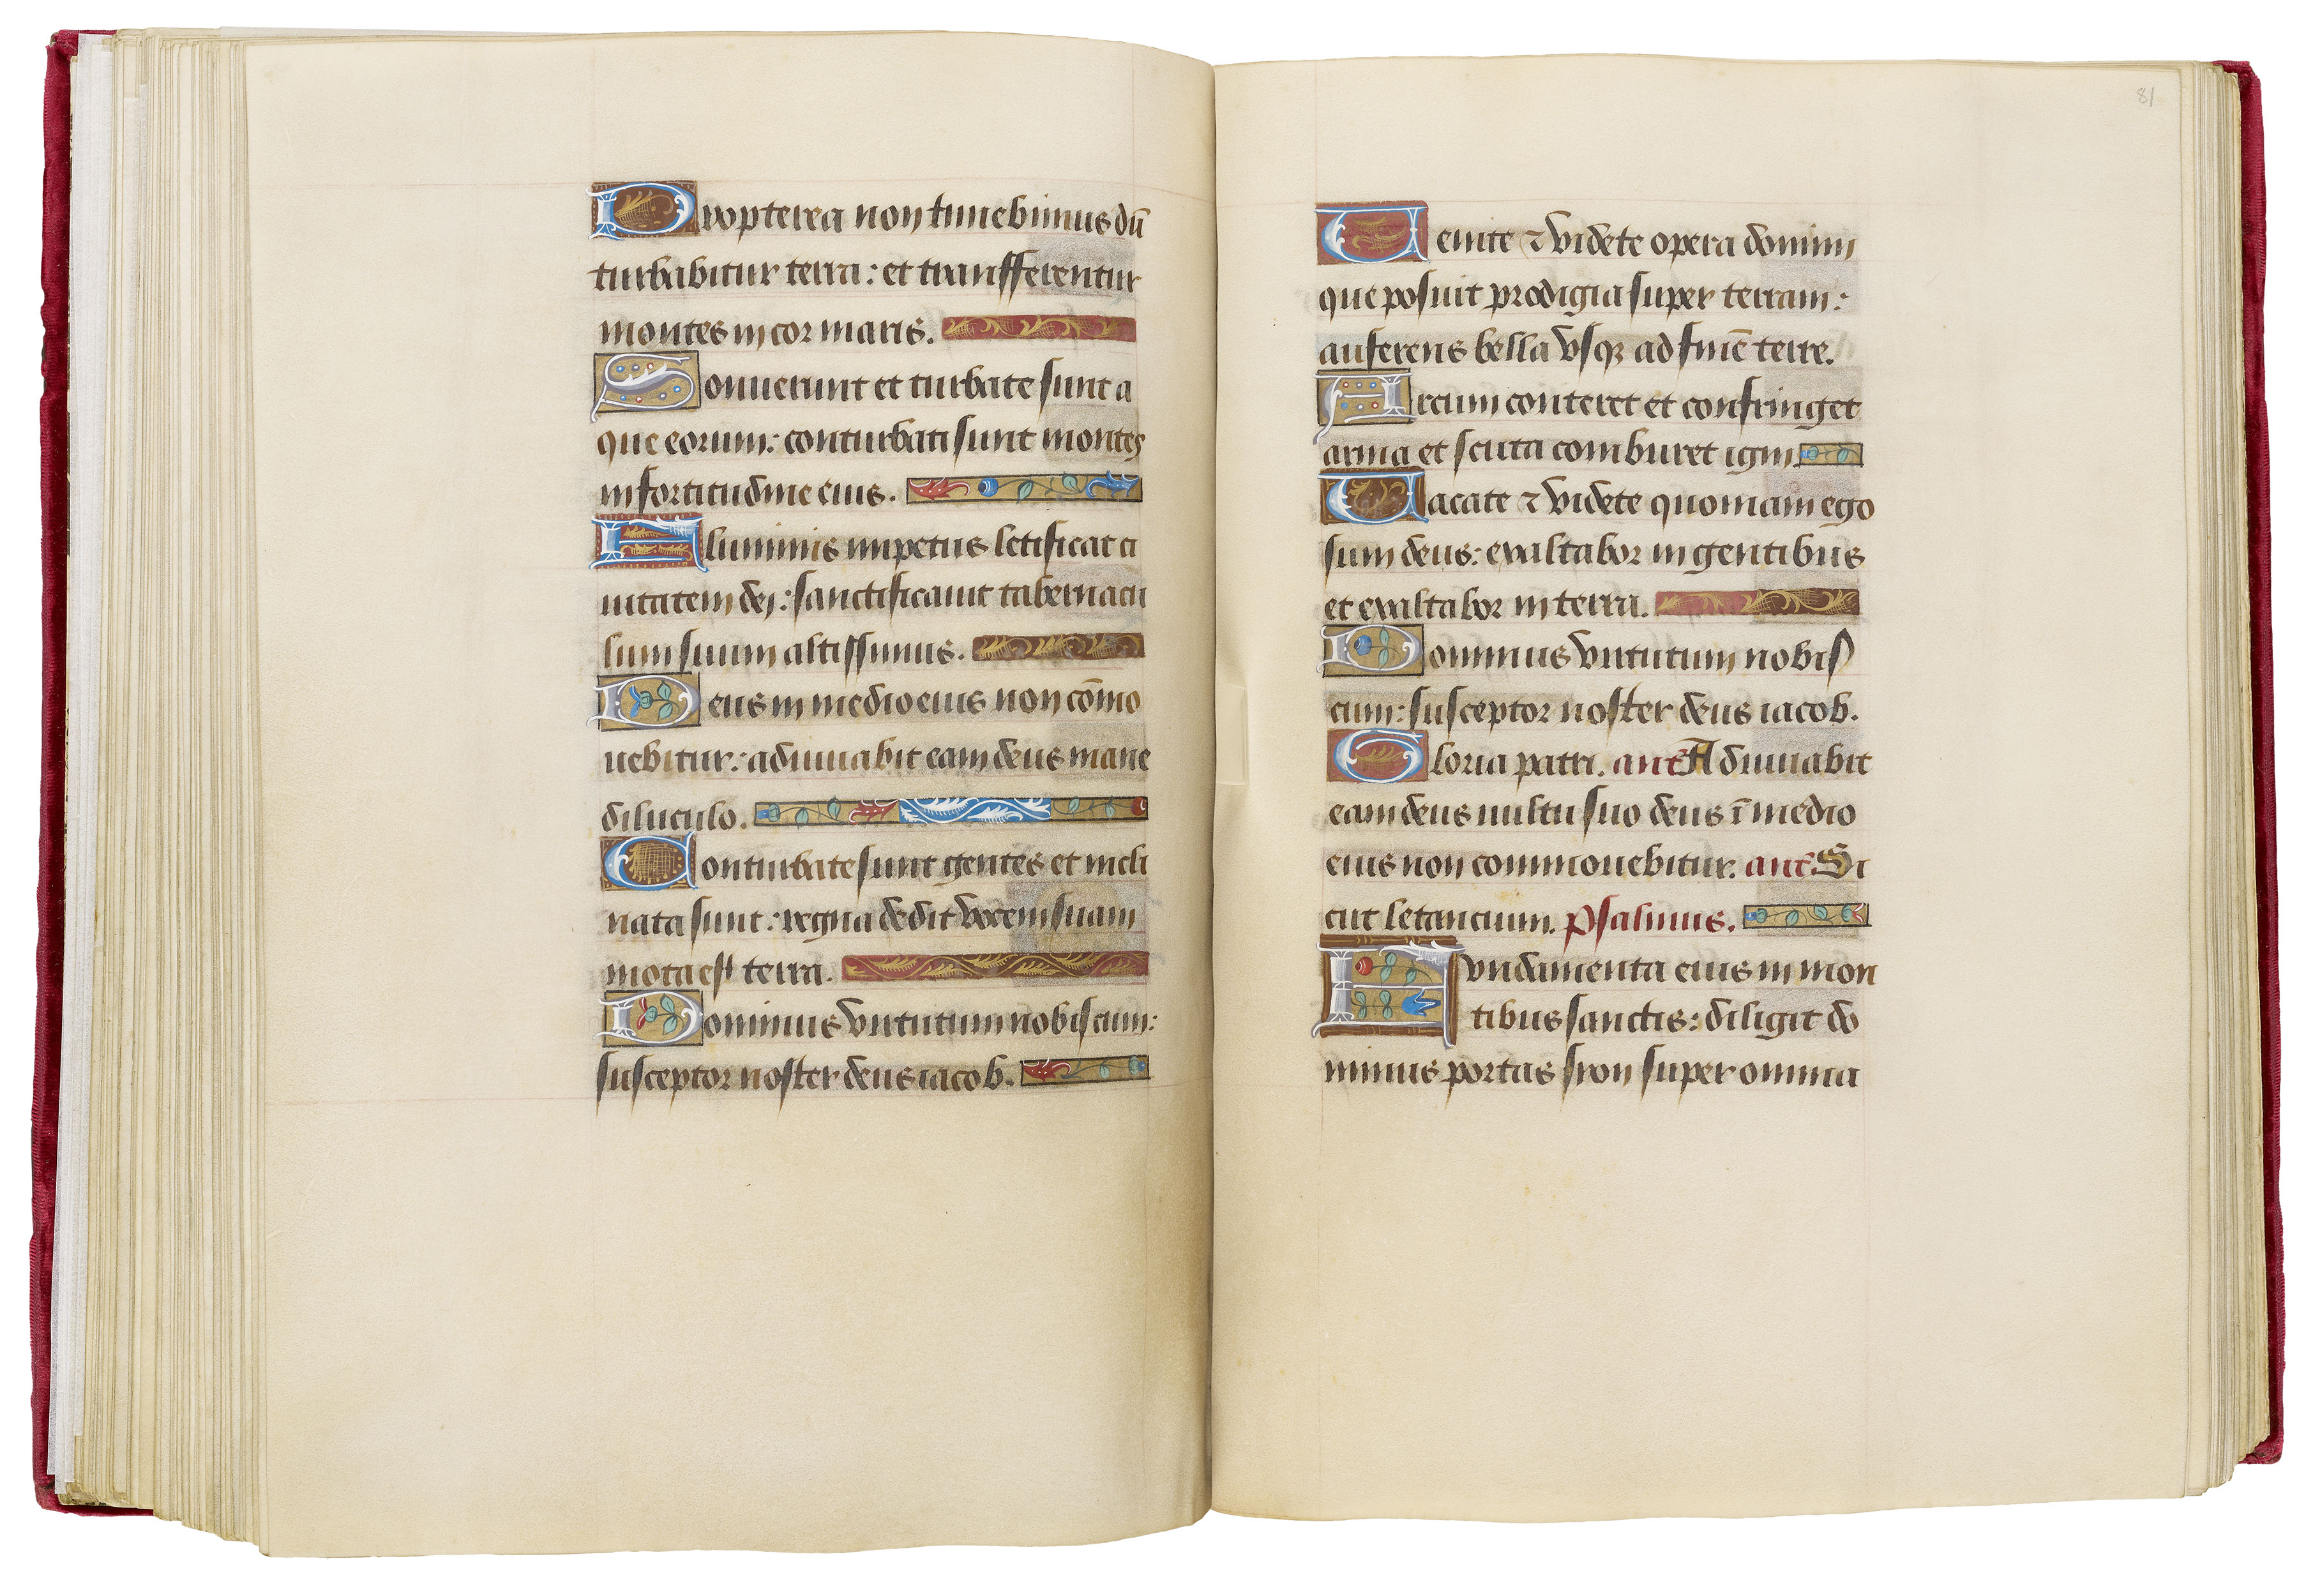 Propterea non timebimus dū
turbabitur terra: et transfferentur
montes in cor maris.
Sonuerunt et turbate sunt a
que eorum: conturbati sunt montes
in fortitudine eius.
Fluminis impetus letificat ci
uitatem dei: sanctificauit tabernacu
lum suum altissimus.
Deus in medio eius non cōmo
uebitur: adiuuabit eam deus mane
diluculo.
Conturbate sunt gentes et incli
nata sunt: regna dedit vocem suam
mota est terra.
Dominus virtutum nobiscum:
susceptor noster deus iacob.
81
Uenite ⁊ videte opera domini
que posuit prodigia super terram:
auferens bella vsqꝫ ad finē terre.
Arcum conteret et confringet
arma et scuta comburet igni
Uacate ⁊ videte quoniam ego
sum deus: exaltabor in gentibus
et exaltabor in terra.
Dominus virtutum nobis
cum: susceptor noster deus iacob.
Gloria patri. ant̄ Adiuuabit
eam deus uultu suo deus ī medio
eius non commouebitur. ant̄. Si
cut letancium. Psalmus.
Fundamenta eius in mon
tibus sanctis: diligit do
minus portas sion super omnia